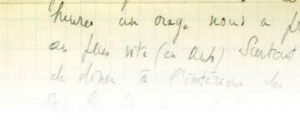 heures un orage nous a
au plus vite (en auto) Surtout
de dîner à l'intérieur des